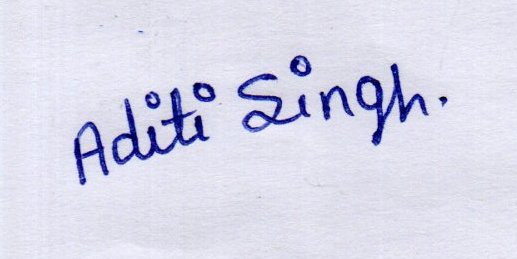 Aditi Singh.